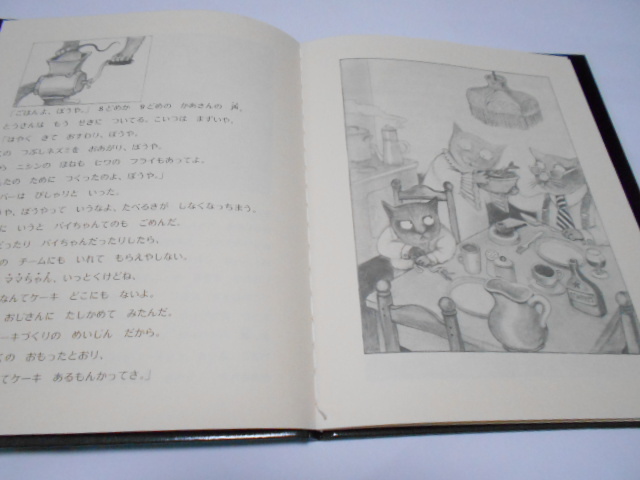 「ごはんよ、ぼうや。」 8どめか 9どめの かあさんの 声。
とうさんは もう せきに ついてる。こいつは まずいや。
「はやく きて おすわり、ぼうや。
の つぶしネズミを おあがり、ぼうや。
ら ニシンの ほねも にわの フライもあってよ。
たの ために つくったのよ、ぼうや。」
パーは ぴしゃりと いった。
や、ぼうやって いうなよ、たべるきが しなくなっちまう。
に いうと パイちゃんての も ごめんだ。
だったり パイちゃんだったりしたら、
の チームにも いれて もらえやしない。
ママちゃん、いっとくけどね、
なんてケーキ どこにも ないよ。
おじさんに たしかめて みたんだ。
ーキづくりの めいじん だから。
くの おもったとおり、
てケーキ あるもんかってさ。」